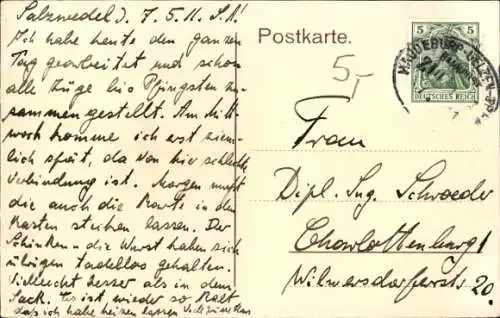 Salzwedel J. 7.5.11. S.K.
Ich habe heute den ganzen
Tag gearbeitet und schon
alle Züge bis Pfingsten zu-
sammengestellt. Am Mitt-
woch komme ich erst ziem-
lich spät, da von hier schlechte
Verbindung ist. Morgen mußt
die auch die Karte in den
Kasten stecken lassen. Der
Schinken - die Wurst haben sich
übrigens tadellos gehalten.
Vielleicht besser als in dem
Sack. Es ist wieder so kalt
daß ich habe heizen lassen
Postkarte.
5
5
DEUTSCHES REICH
MAGDEBURG-UELZEN
5,-
Frau
Dipl. Ing. Schroeder
Charlottenburg 1
Wilmersdorferstr 20.